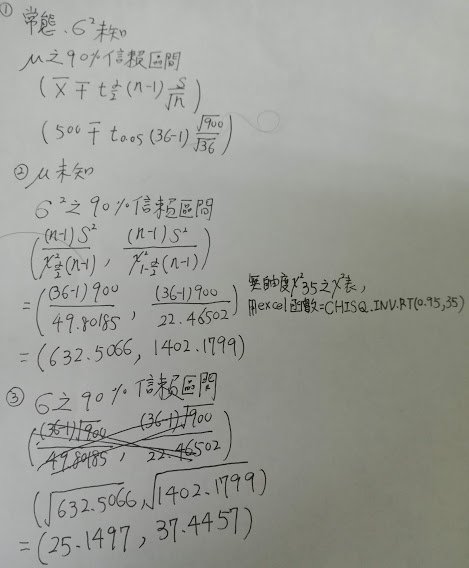 ① 常態, σ²未知
μ之90%信賴區間
(X̄ ∓ t α/2 (n-1) S/√n)
(500 ∓ t0.05 (36-1) √900/√36)
② μ未知
σ²之90%信賴區間
((n-1)S²/χ²α/2(n-1), (n-1)S²/χ²1-α/2(n-1))
=((36-1)900/49.80185, (36-1)900/22.46502)
χ²35之χ²表,
用excel函數=CHISQ.INV.RT(0.95,35)
=(632.5066, 1402.1799)
③ σ之90%信賴區間
((36-1)√900/49.80185, (36-1)√900/22.46502)
(√632.5066, √1402.1799)
=(25.1497, 37.4457)